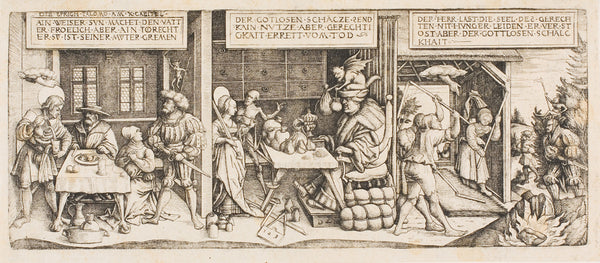 SPRICH SALOMO AM X CAPITEL
AIN WEISER SVN MACHT DEN VATT
ER FROELICH ABER AIN TORECHT
ER SV IST SEINER MVTER GREMEN
DER GOTLOSEN SCHÄCZE ZEND
KAIN NVTZE ABER GERECHTI
GKAIT ERRETT VOM TOD
DER HERR LAST DIE SEEL DES GERECH
TEN NIT HVNGER LEIDEN ER VER ST
OST ABER DER GOTTLOSEN SCHALC
KHAIT